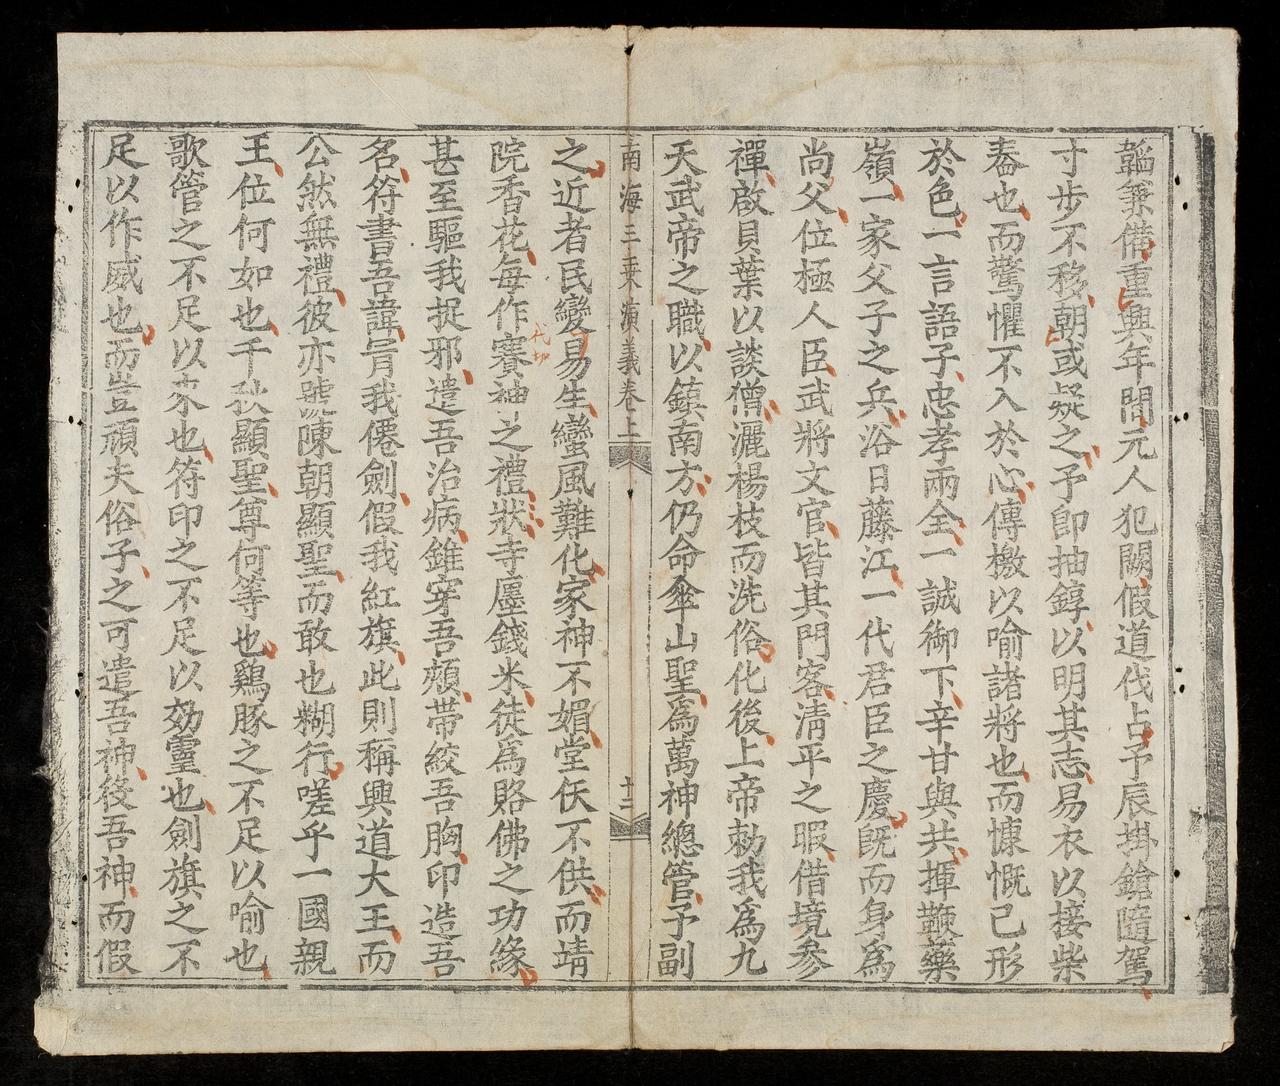 韜兼備重興年間元人犯闕假道伐占予辰掛鎗隨駕
寸步不移朝或疑之予即抽錞以明其志易衣以接柴
畚也而驚懼不入於心傳檄以喻諸將也而慷慨已形
於色一言語子忠孝兩全一誠御下辛甘與共揮鞭藥
嶺一家父子之兵浴日藤江一代君臣之慶既而身爲
尚父位極人臣武將文官皆其門客清平之暇借境參
禪啟貝葉以談僧灑楊枝而洗俗化後上帝勅我爲九
天武帝之職以鎮南方仍命傘山聖爲萬神總管予副
南海三乘演義卷上 十二
之近者民變易生蠻風難化家神不媚堂仸不供而靖
院香花每作賽神之禮狀寺廛錢米徒爲賂佛之功緣
代切
甚至驅我捉邪遣吾治病錐穿吾頰帶絞吾胸印造吾
名符書吾諱肎我僊劍假我紅旗此則稱興道大王而
公然無禮彼亦號陳朝顯聖而敢也糊行嗟乎一國親
王位何如也千秋顯聖尊何等也鷄豚之不足以喻也
歌管之不足以來也符印之不足以効靈也劍旗之不
足以作威也而豈頑夫俗子之可遣吾神役吾神而假